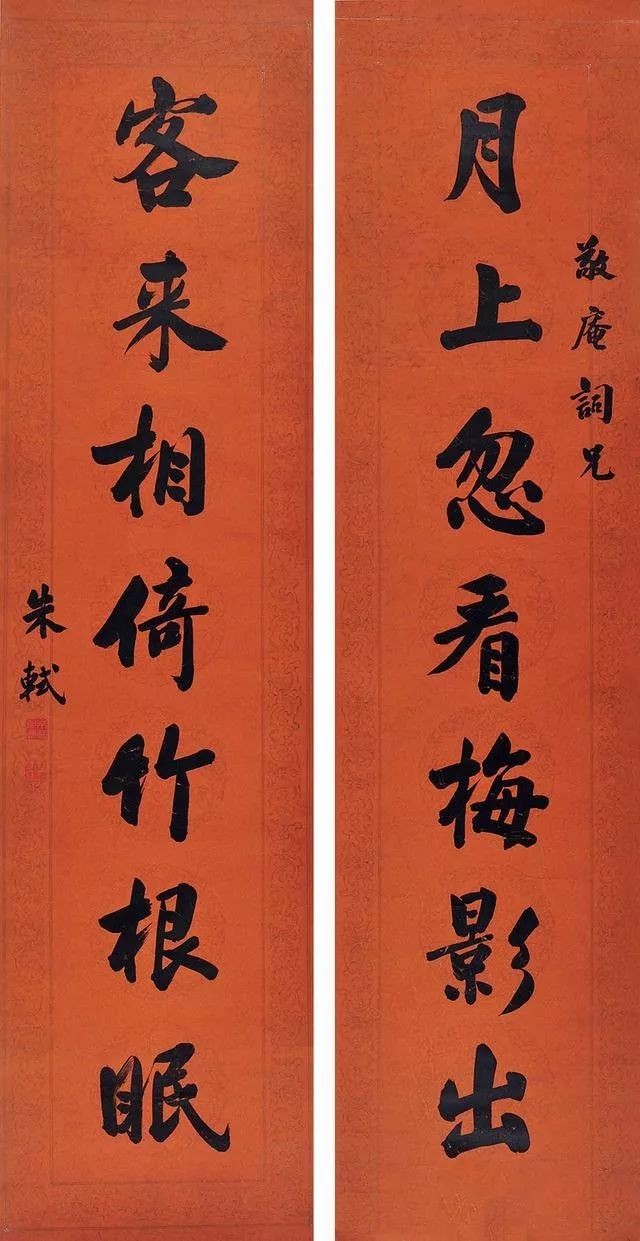 敬庵詞兄
月上忽看梅影出
客来相倚竹根眠
朱軾